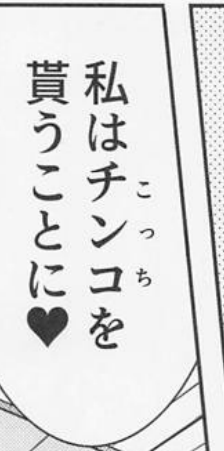 私はチンコを
こっち
貰うことに♥